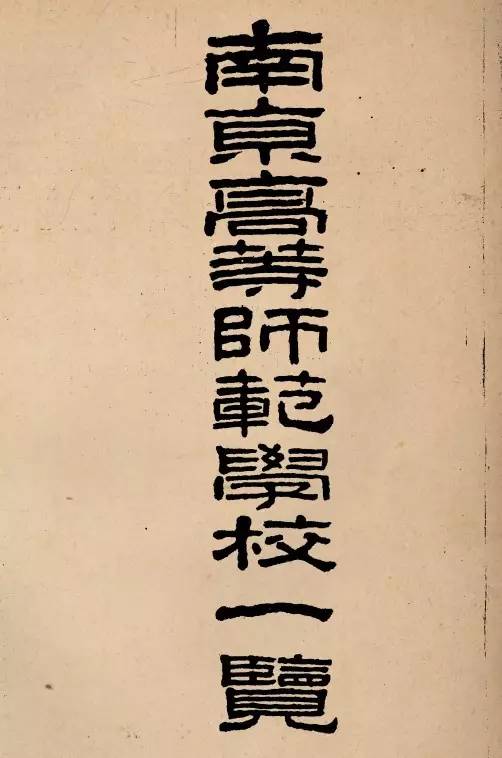 南京高等師範學校一覽